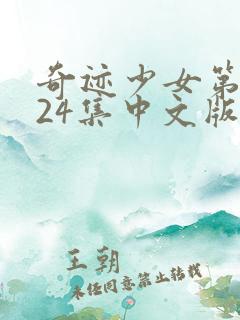 奇迹少女第
24集中文版
王朝
未经同意禁止转载